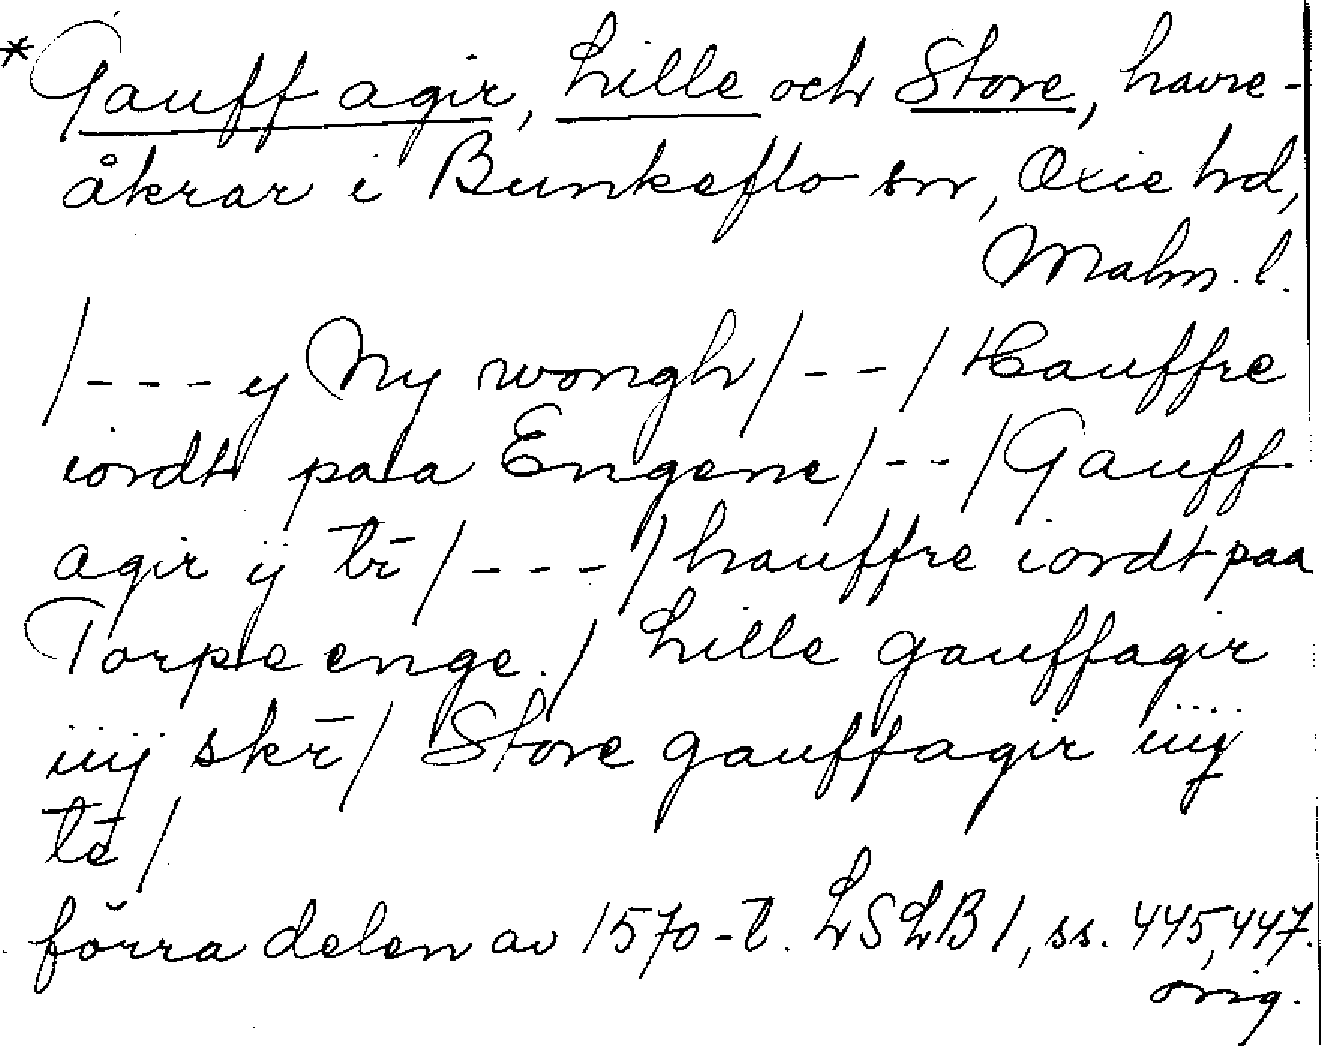 *Gauff agir, Lille och Store, havre-
åkrar i Bunkeflo sn, Oxie hd,
Malm. l.
/---y Ny wongh/--/Hauffre
iordt paa Engene/--/Gauff
agir ij tr̄/---/hauffre iordt paa
Torpe enge./ Lille gauffagir
iiij skr̄/ Store gauffagir iiij
te̅/
förra delen av 1570-t. LSLB 1, ss. 445, 447.
orig.